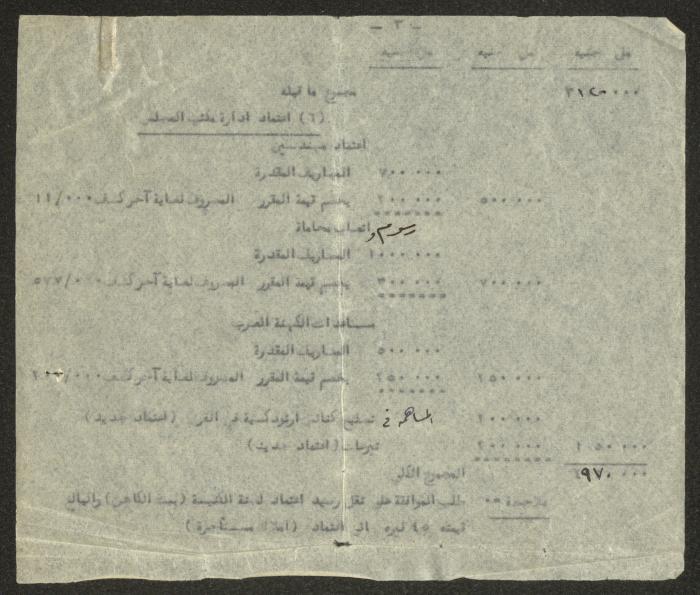 - ٣ -
مل جنيه مل جنيه مل جنيه
مجموع ما قبله ٣١٢٠ ٠٠٠
(٦) اعتماد ادارة مكتب المجلس
اعتماد مهندسين
المصاريف المقدرة ٧٠٠ ٠٠٠
يخصم قيمة المقرر المصروف لغاية آخر كشف ١١/٠٠٠ ٢٠٠ ٠٠٠ ٥٠٠ ٠٠٠
رسوم و اتعاب محاماة
المصاريف المقدرة ١٠٠٠ ٠٠٠
يخصم قيمة المقرر المصروف لغاية آخر كشف ٥٧٧/٠٠٠ ٣٠٠ ٠٠٠ ٧٠٠ ٠٠٠
مساعدات الكهنة العرب
المصاريف المقدرة ٥٠٠ ٠٠٠
يخصم قيمة المقرر المصروف لغاية آخر كشف ٢٠٠/٠٠٠ ٢٥٠ ٠٠٠ ٢٥٠ ٠٠٠
المساهمة في كنائس ارثوذكسية في القرى (اعتماد جديد) ٢٠٠ ٠٠٠
تبرعات (اعتماد جديد) ٢٠٠ ٠٠٠
المجموع الكلي ٩٧٠ ٠٠٠
ملاحظة طلب الموافقة على نقل رصيد اعتماد لجنة الكنيسة (بيت الكاهن) والبالغ
قيمته ٤٥ ليره الى اعتماد (املاك مستأجرة)